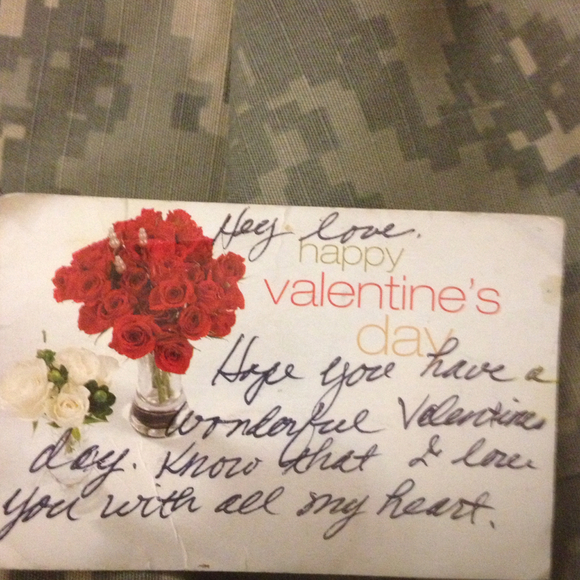 Hey love.
happy
valentine's
day
Hope you have a
wonderful Valentines
day. Know that I love
you with all my heart.